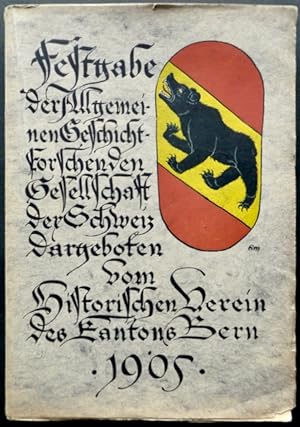 Festgabe
der Allgemei-
nen Geschicht-
forschenden
Gesellschaft
der Schweiz
dargeboten
vom
Historischen Verein
des Cantons Bern
· 1905 ·